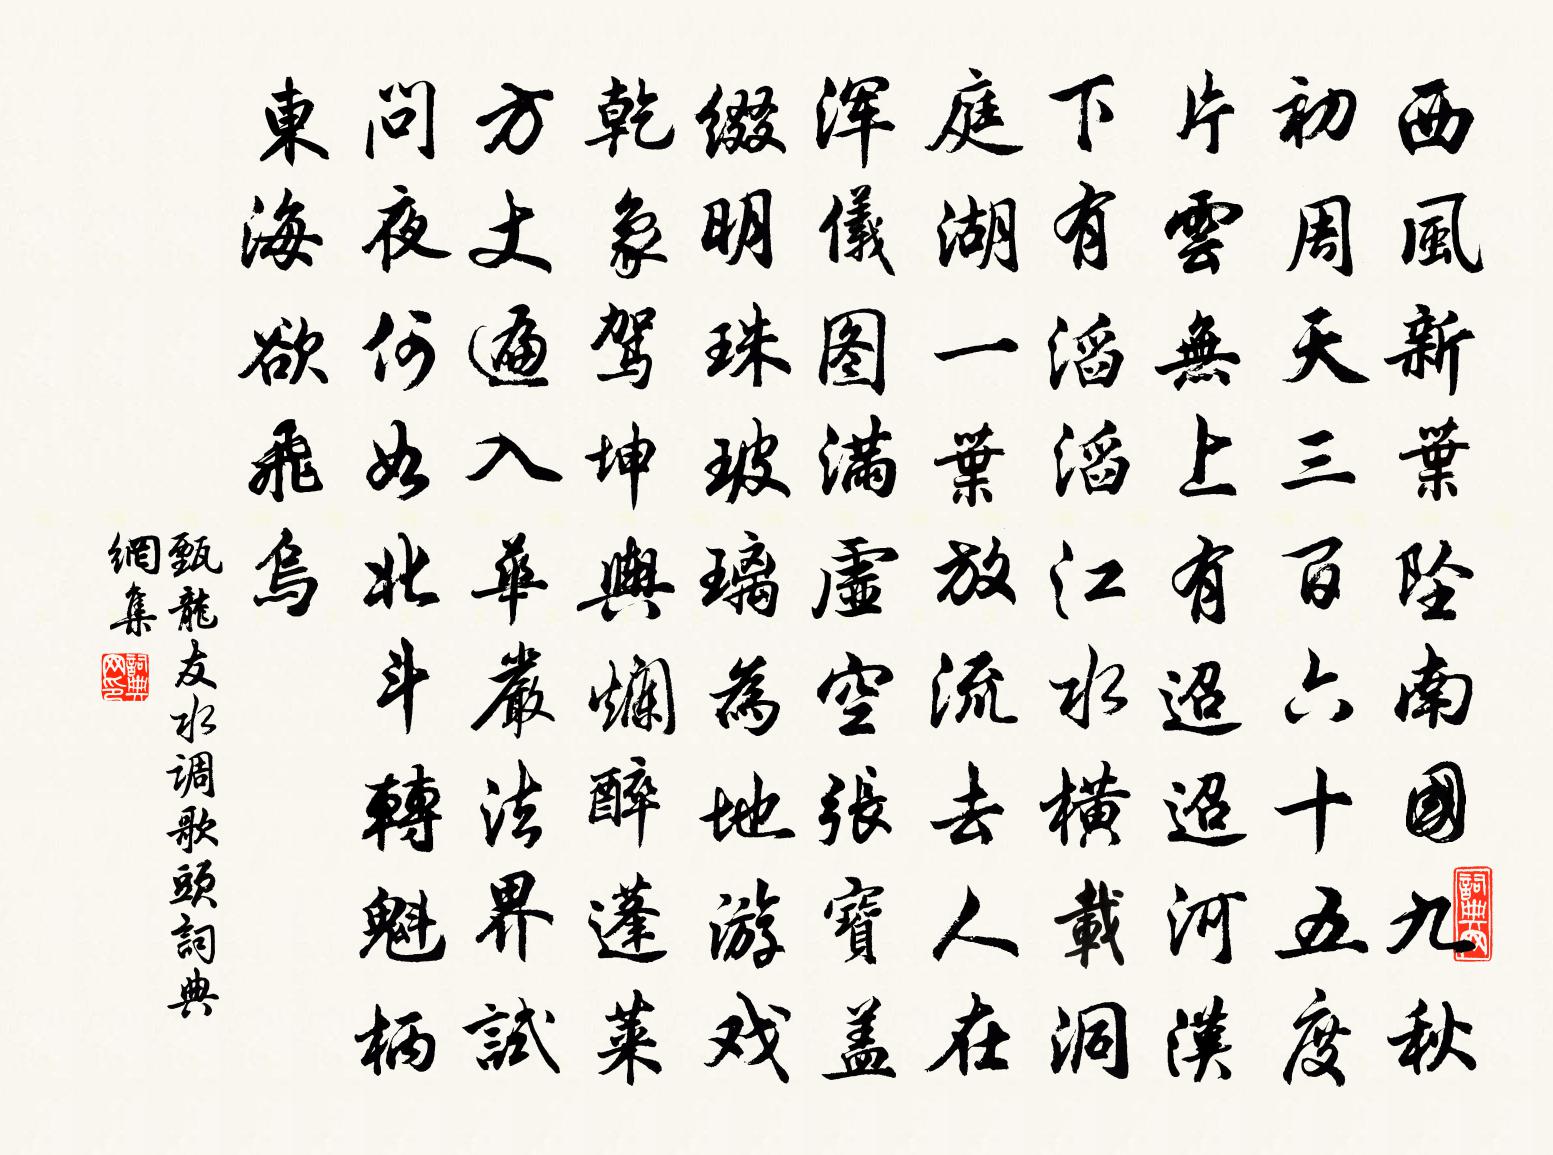 西風新葉坠南國九秋
初周天三百六十五度
片雲無上有迢迢河漢
下有滔滔江水橫載洞
庭湖一葉放流去人在
浑儀图滿虛空張寶盖
綴明珠玻璃為地游戏
乾象駕坤輿爛醉蓬萊
方丈遍入華嚴法界試
問夜何如北斗轉魁柄
東海欲飛烏
甄龍友水调歌頭詞典
網集
詞典网
詞典网印